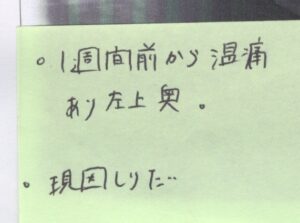 。1週間前から温痛
あり左上奥。
。現因しりた…